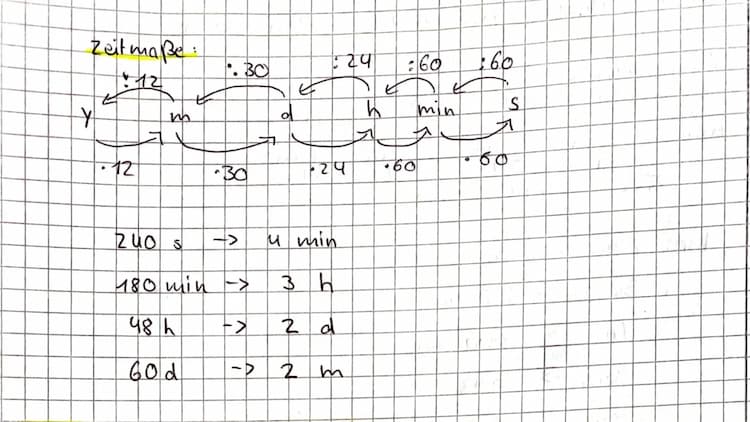 Zeitmaße:
:12 :30 :24 :60 :60
y m d h min s
·12 ·30 ·24 ·60 ·60
240 s -> 4 min
180 min -> 3 h
48 h -> 2 d
60 d -> 2 m